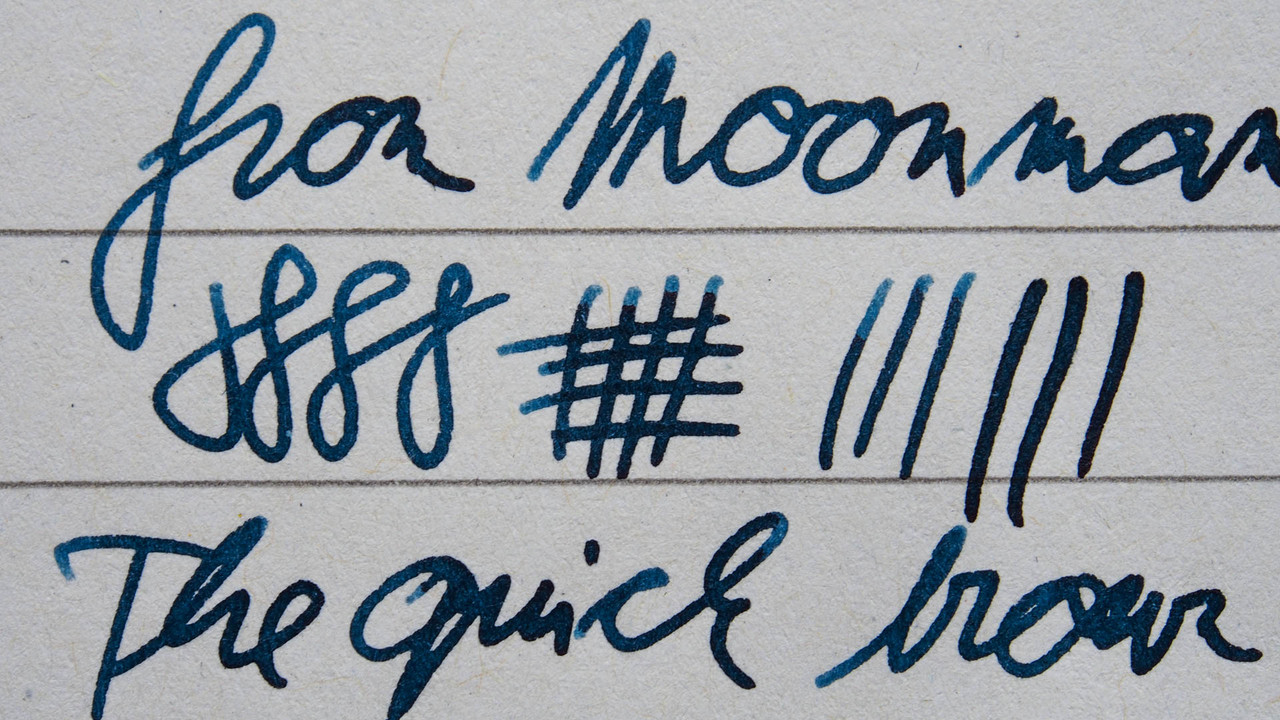 from Moonman
The quick brown